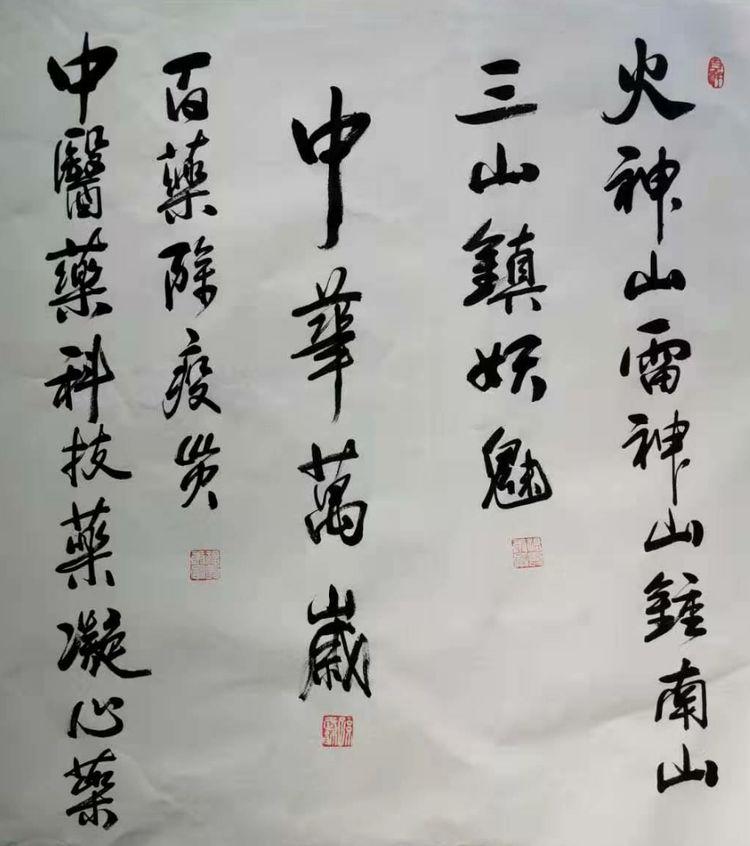 火神山雷神山鍾南山
三山鎮妖魅
中華萬歲
百藥除疫災
中醫藥科技藥凝心藥